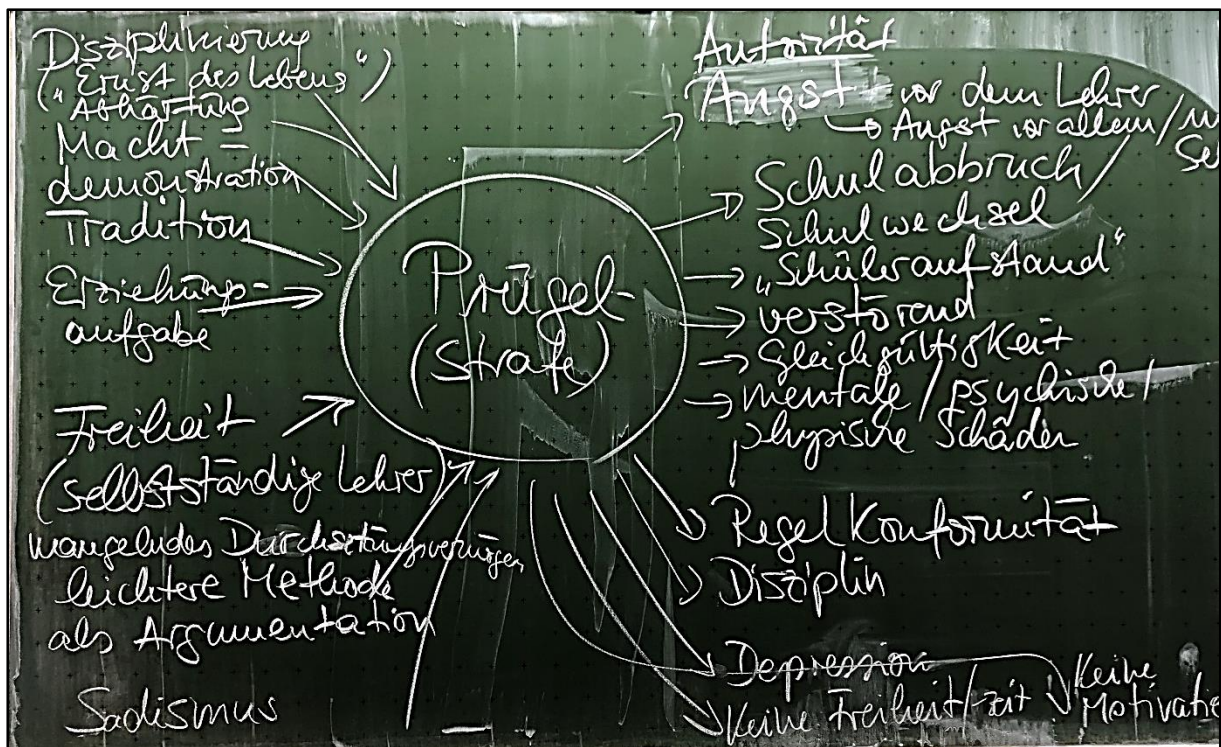 Disziplinierung
("Ernst des Lebens")
Abhärtung
Macht =
demonstration
Tradition
Erziehungs-
aufgabe
Freiheit
(selbstständige Lehrer)
mangelndes Durchsetzungsvermögen
leichtere Methode
als Argumentation
Sadismus
Prügel-
(strafe)
Autorität
Angst vor dem Lehrer
→ Angst vor allem /
Schulabbruch /
Schulwechsel
→ „Schüleraufstand"
→ verstörend
→ Gleichgültigkeit
→ mentale / psychische /
physische Schäden
Regelkonformität
Disziplin
Depression
Keine Freiheit/-zeit
Keine
Motivatio